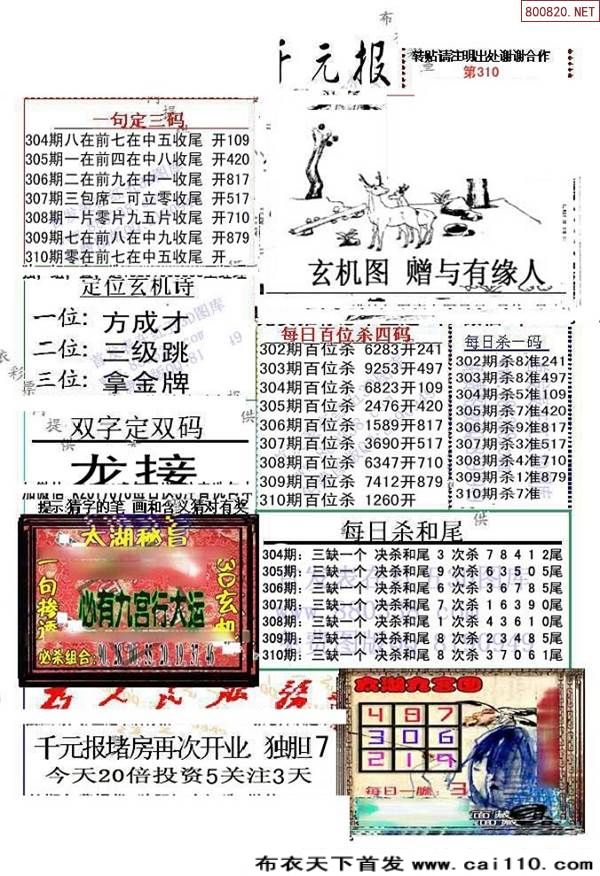 800820.NET
千元报
转贴请注明出处谢谢合作
第310
一句定三码
304期八在前七在中五收尾 开109
305期一在前四在中八收尾 开420
306期二在前九在中一收尾 开817
307期三包席二可立零收尾 开517
308期一片零片九五片收尾 开710
309期七在前八在中九收尾 开879
310期零在前七在中五收尾 开
玄机图 赠与有缘人
定位玄机诗
一位: 方成才
二位: 三级跳
三位: 拿金牌
每日百位杀四码
302期百位杀 6283开241
303期百位杀 9253开497
304期百位杀 6823开109
305期百位杀 2476开420
306期百位杀 1589开817
307期百位杀 3690开517
308期百位杀 6347开710
309期百位杀 7412开879
310期百位杀 1260开
每日杀一码
302期杀8准241
303期杀8准497
304期杀5准109
305期杀7准420
306期杀9准817
307期杀3准517
308期杀4准710
309期杀1准879
310期杀7准
双字定双码
龙接
提示猜字的笔 画和含义猜对有奖
太湖秘旨
一句掺透
3D玄机
必有九宫行大运
必杀组合:
每日杀和尾
304期: 三缺一个 决杀和尾 3 次杀 7 8 4 1 2尾
305期: 三缺一个 决杀和尾 9 次杀 3 8 5 0 5尾
306期: 三缺一个 决杀和尾 6 次杀 3 6 7 8 5尾
307期: 三缺一个 决杀和尾 7 次杀 1 6 3 9 0尾
308期: 三缺一个 决杀和尾 1 次杀 4 3 6 1 0尾
309期: 三缺一个 决杀和尾 8 次杀 0 2 6 8 5尾
310期: 三缺一个 决杀和尾 8 次杀 1 7 0 6 1尾
千元报堵房再次开业 独胆7
今天20倍投资5关注3天
太湖九宫图
4 8 7
3 0 6
2 1 9
每日一胆: 3
布衣天下首发 www.cai110.com